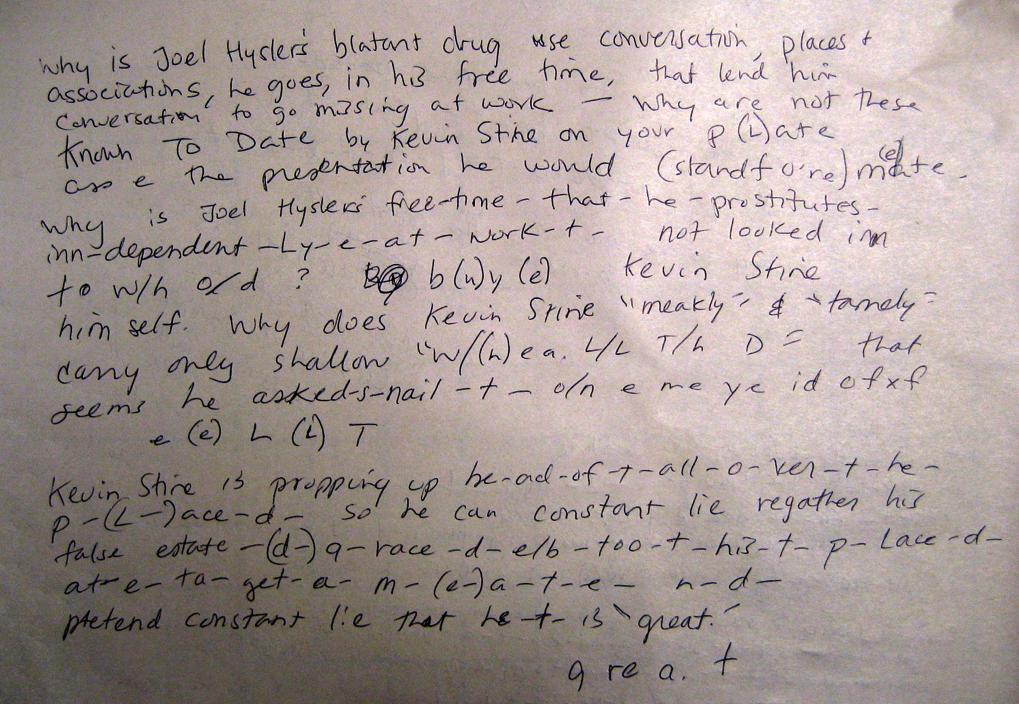 why is Joel Hysler's blatant drug use conversation, places +
associations, he goes, in his free time, that lend him
conversation to go missing at work — why are not these
known To Date by Kevin Stine on your p (L) ate
ass e the presentation he would (standf o're) m(e)ate.
why is Joel Hysler's free-time-that-he-prostitutes-
inn-dependent-Ly-e-at-work-t- not looked inn
to w/h o/d ? b(u)y (e) Kevin Stine
him self. Why does Kevin Stine "meakly" & "tamely"
carry only shallow "w/(h)ea. L/L T/h D" that
seems he asked-s-nail-t- o/n e me ye id ofxf
e (e) L (L) T
Kevin Stine is propping up be-ad-of-t-all-o-ver-t-he-
p-(L-)ace-d- so he can constant lie regather his
false estate-(d-)g-race-d-e/b-too-t-his-t-p-Lace-d-
at-e-ta-get-a-m-(e-)a-t-e- n-d-
pretend constant lie that he-t- is "great."
g re a. t